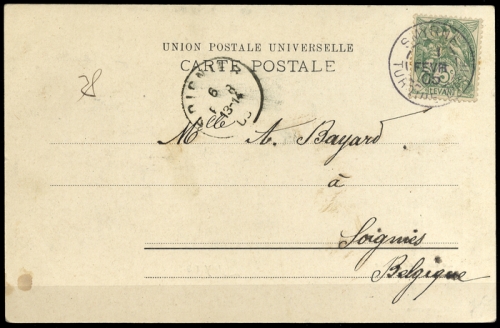 UNION POSTALE UNIVERSELLE
CARTE POSTALE
SMYRNE
1
FEVR
05
TURQUIE
LEVANT
SOIGNIES
6
13-14
Mlle A. Bayard
à
Soignies
Belgique